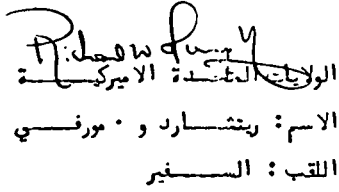 Richard W Murphy
الولايات المتحدة الاميركيـــة
الاسم : ريتشـــارد و ٠ مورفـــي
اللقب : الســـــفير